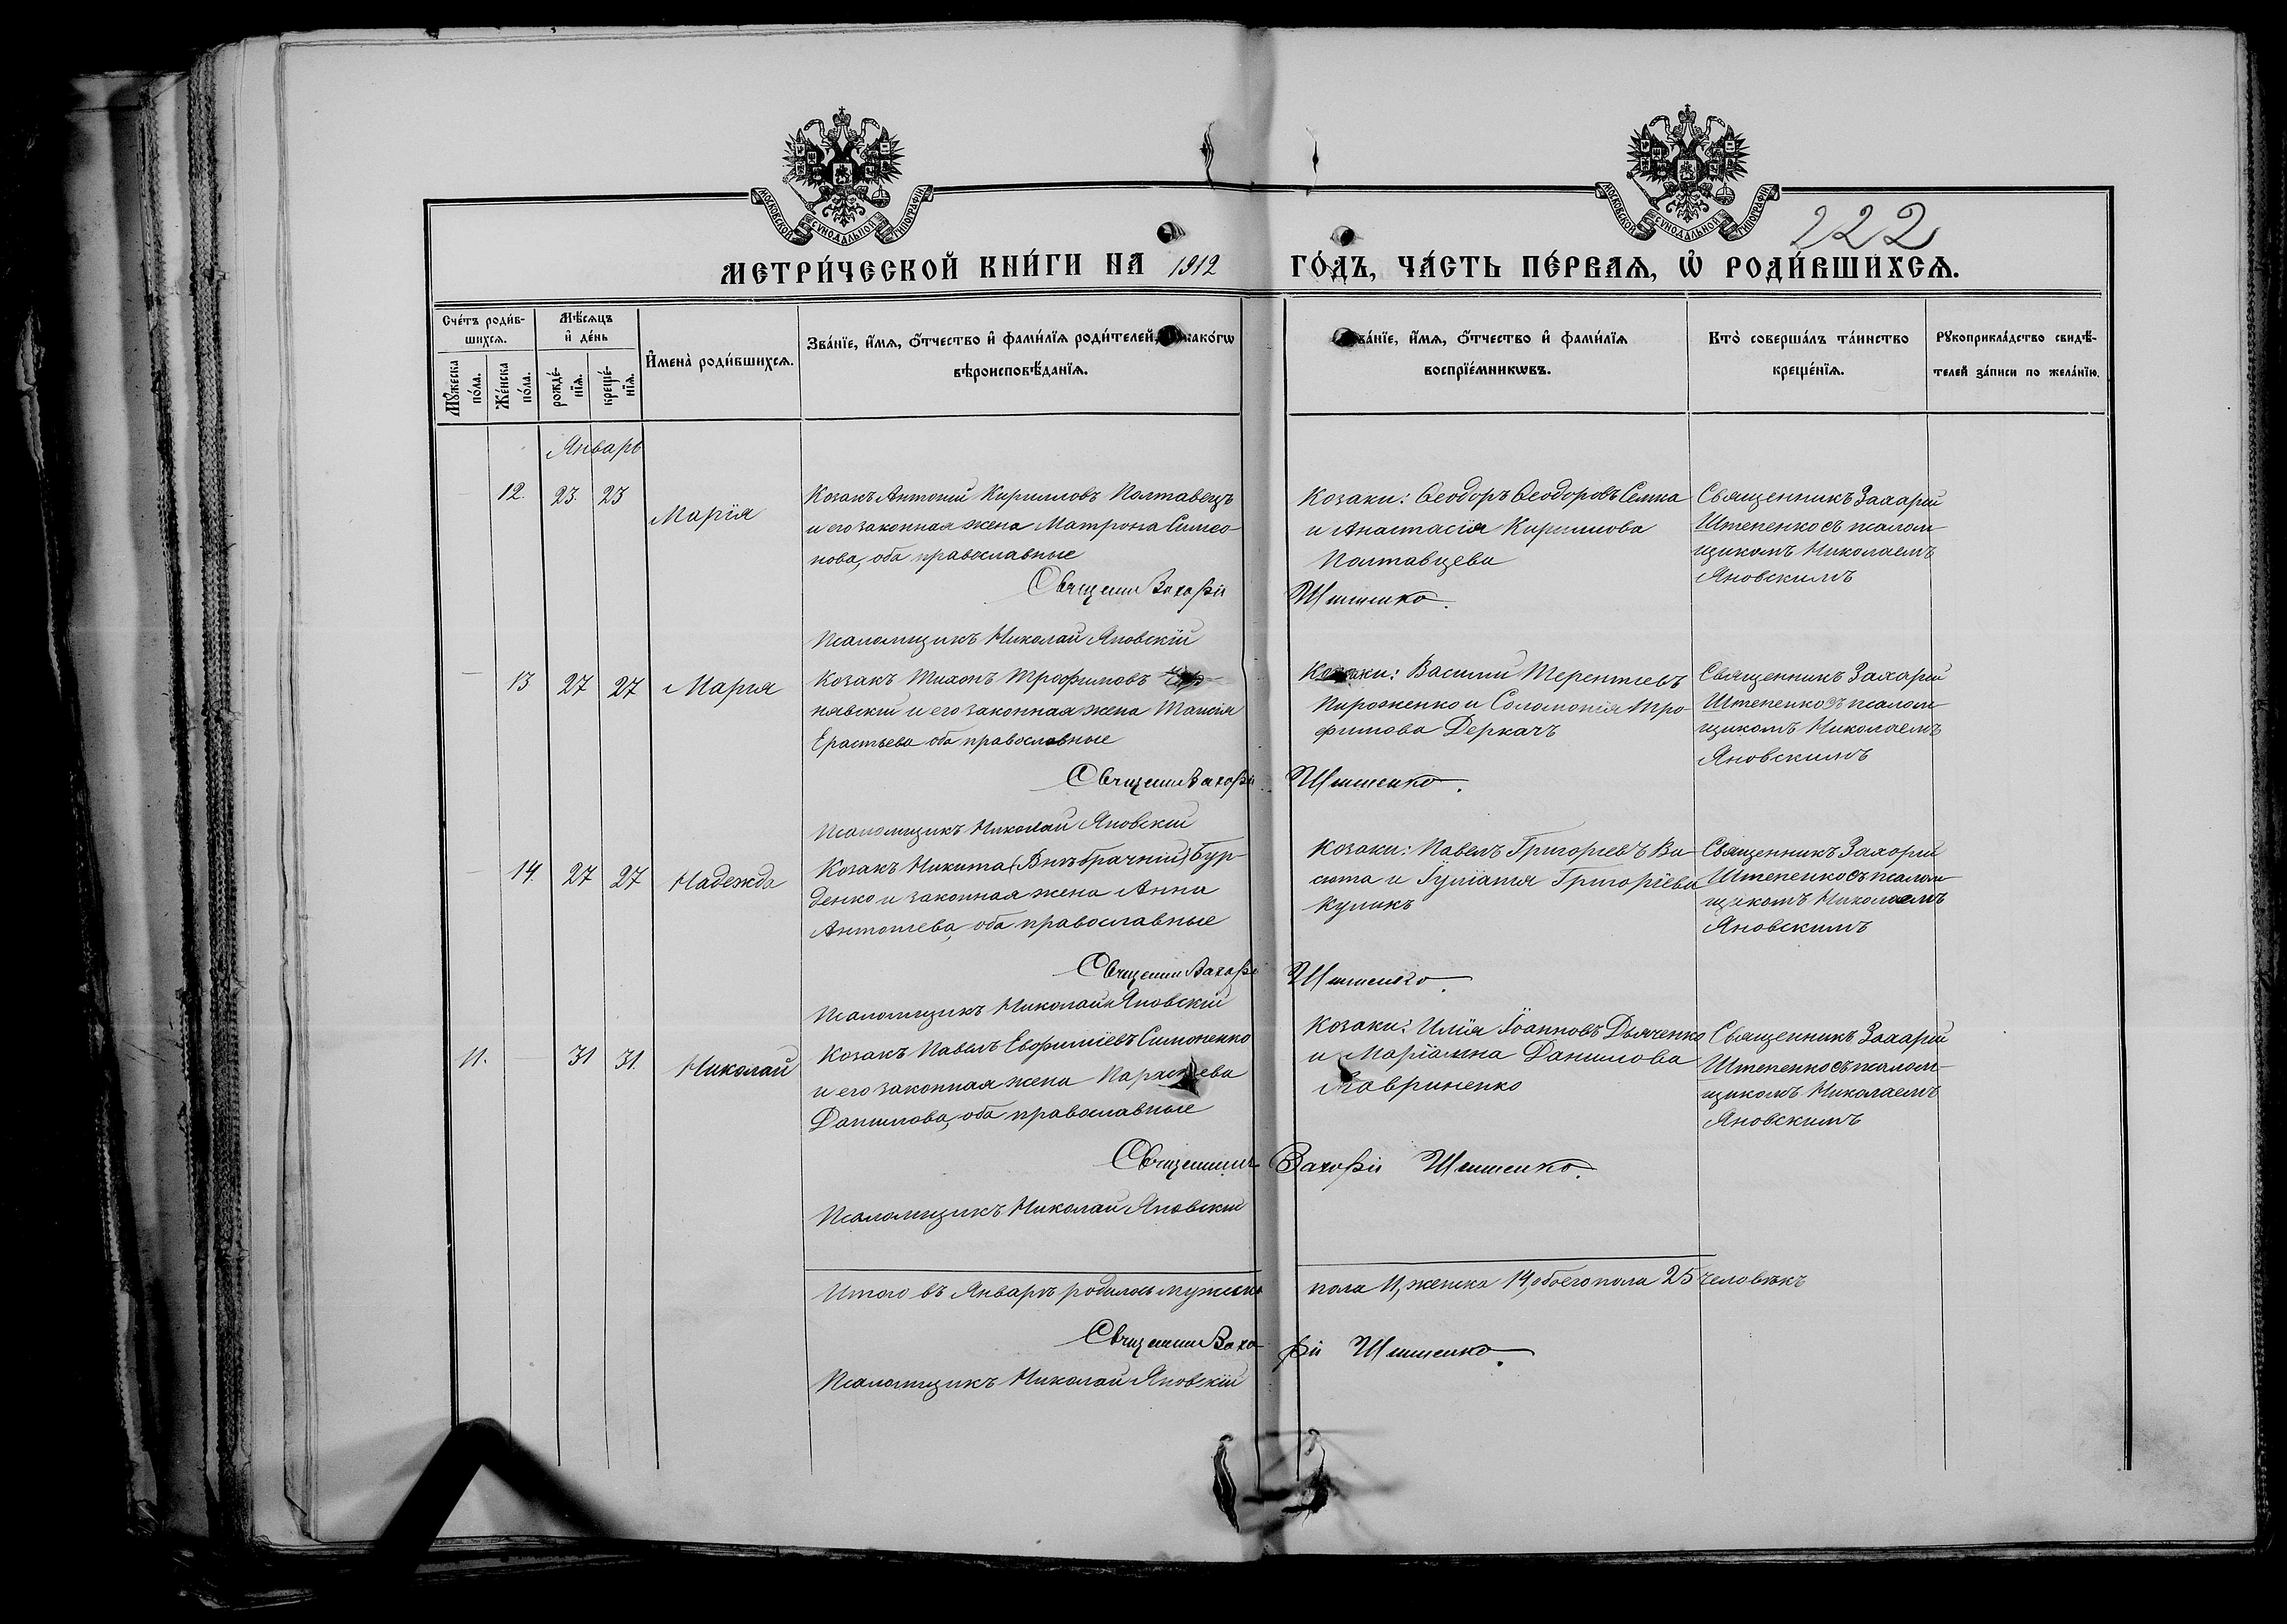 МОСКОВСКОЙ СѴНОДАЛЬНОЙ ТИПОГРАФІИ
МОСКОВСКОЙ СѴНОДАЛЬНОЙ ТИПОГРАФІИ
222
МЕТРИ́ЧЕСКОЙ КНИ́ГИ НА 1912 ГО́ДЪ, ЧА́СТЬ ПЕ́РВАѦ, Ѡ РОДИ́ВШИХСѦ.
Сче́тъ роди́в-
шихсѧ.
Мꙋ́жеска по́ла.
Же́нска по́ла.
Мѣ́сѧцъ
и де́нь
рожде́-
нїѧ.
креще́-
нїѧ.
Имена̀ роди́вшихсѧ.
Зва́нїе, и́мѧ, ѻ́тчество и фами́лїѧ роди́телей, како́гѡ
вѣроисповѣ́данїѧ.
ва́нїе, и́мѧ, ѻ́тчество и фами́лїѧ
воспрїе́мникѡвъ.
Кто̀ соверша́лъ та́инство
креще́нїѧ.
Рꙋкоприкла́дство свидѣ́-
телей за́писи по жела́нїю.
Январь
12. 23. 23 Марія
Козакъ Антоній Кирилловъ Полтавецъ
и его законная жена Матрона Симео-
нова, оба православные
Козаки: Ѳеодоръ Ѳеодоровъ
и Анастасія Кириллова
Полтавцева
Священникъ Захарій
Штепенко съ псалом-
щикомъ Николаемъ
Яновскимъ
Священ Захарій Штепенко.
Псаломщикъ Николай Яновскій
13 27 27 Марія
Козакъ Тихонъ Трофимовъ
нявскій и его законная жена Таисія
Ерастьева оба православные
Козаки: Василій Терентіевъ
Пироженко и Соломонія Тро-
фимова Деркачъ
Священникъ Захарій
Штепенко съ псалом-
щикомъ Николаемъ
Яновскимъ
Священ Захарій Штепенко.
Псаломщикъ Николай Яновскій
14. 27 27 Надежда
Козакъ Никита (Внѣбрачній) Бур-
денко и законная жена Анна
Антоніева, оба православные
Козаки: Павелъ Григоріевъ Ва-
сюта и Іуліанія Григоріева
Куликъ
Священникъ Захарій
Штепенко съ псалом-
щикомъ Николаемъ
Яновскимъ
Священ Захарій Штепенко.
Псаломщикъ Николай Яновскій
11. 31 31. Николай
Козакъ Павелъ Евфиміевъ Симоненко
и его законная жена Параскева
Данилова, оба православные
Козаки: Илія Іоанновъ Дьяченко
и Маріамна Данилова
Гавриненко
Священникъ Захарій
Штепенко съ псалом-
щикомъ Николаемъ
Яновскимъ
Священникъ Захарій Штепенко.
Псаломщикъ Николай Яновскій
Итого въ Январѣ родилось мужеска пола 11, женска 14, обоего пола 25 человѣкъ
Священ Захарій Штепенко.
Псаломщикъ Николай Яновскій